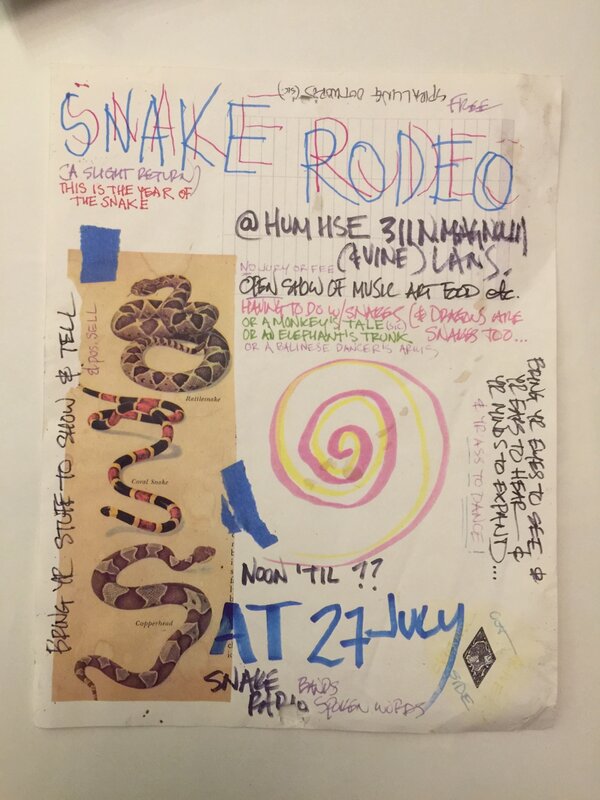 SPIRALLING OUTWORDS (SIC.)
FREE
SNAKE RODEO
(A SLIGHT RETURN)
THIS IS THE YEAR OF
THE SNAKE
@ HUM HSE 311 N. MAGNOLIA
(& VINE) LANS.
NO JURY OR FEE
OPEN SHOW OF MUSIC ART FOOD etc.
HAVING TO DO W/ SNAKES (& DRAGONS ARE
SNAKES TOO...
OR A MONKEY'S TALE (SIC)
OR AN ELEPHANT'S TRUNK
OR A BALINESE DANCER'S ARMS
BRING YR STUFF TO SHOW & TELL
& POS. SELL
Rattlesnake
Coral Snake
Copperhead
BRING YR EYES TO SEE &
YR EARS TO HEAR &
YR MINDS TO EXPAND...
& YR ASS TO DANCE!
NOON 'TIL ??
SAT 27 JULY
SNAKE
RADIO
BANDS
SPOKEN WORDS
OUT
SIDE